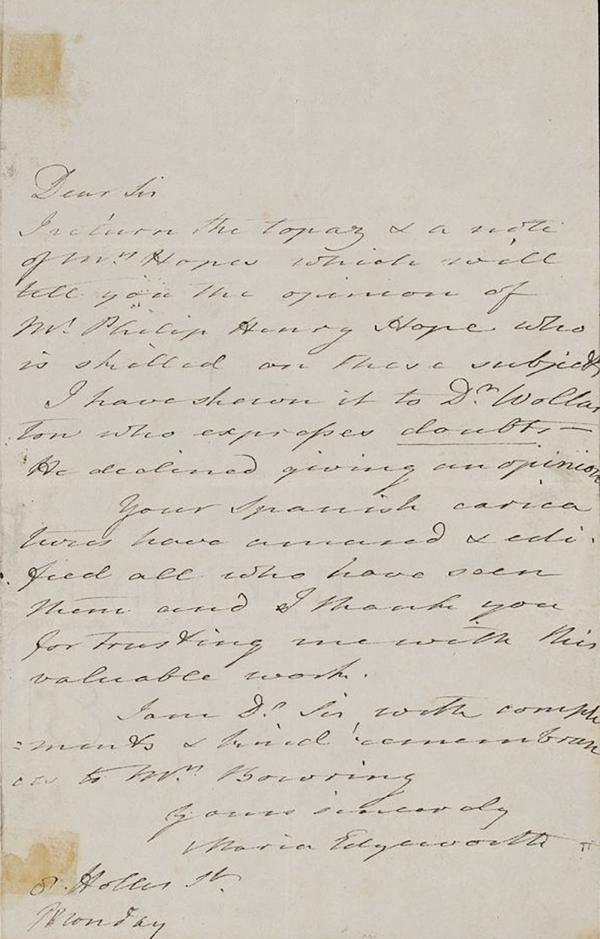 Dear Sir
I return the topaz & a note
of Mrs Hopes which will
tell you the opinion of
Mr Philip Henry Hope who
is skilled on these subjects
I have shewn it to Dr Wollas
ton who expresses doubts—
He declined giving an opinion
Your Spanish carica
tures have amused & edi.
fied all who have seen
them and I thank you
for trusting me with this
valuable work.
I am Dr Sir, with compli
=ments & kind remembran
ces to Mrs Bowring
Yours sincerely
Maria Edgeworth
8. Holles St.
Monday